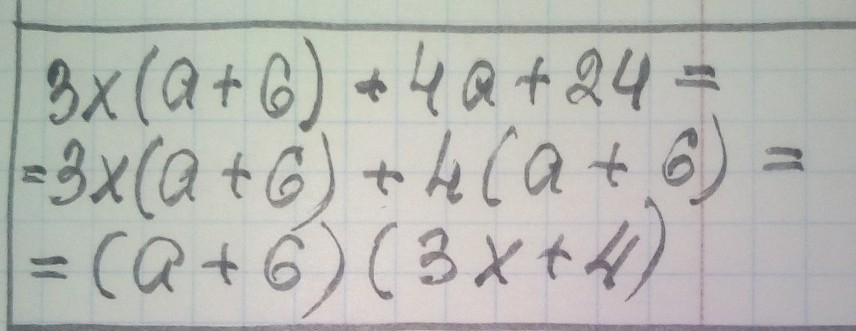 3x(a+6)+4a+24=
=3x(a+6)+4(a+6)=
=(a+6)(3x+4)